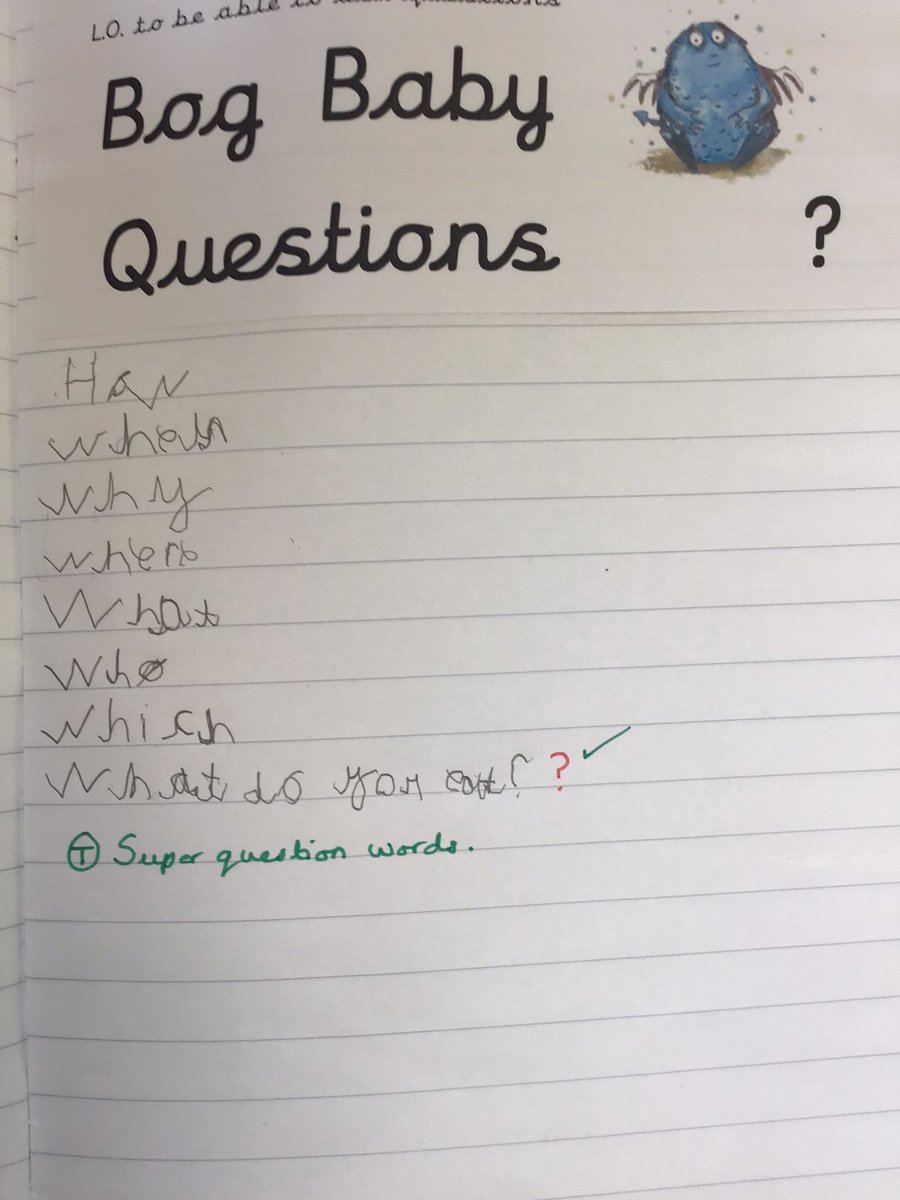 L.O. to be able to
Bog Baby
Questions ?
How
when
why
where
What
Who
Which
What do you eat? ? ✓
Ⓣ Super question words.